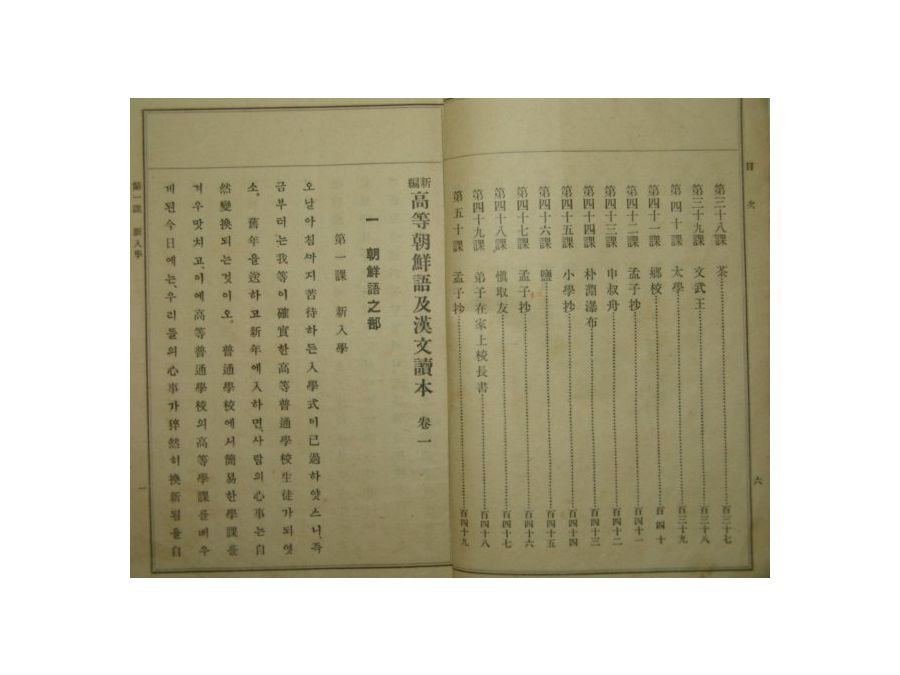 目次
第三十八課 茶 百三十七
第三十九課 文武王 百三十八
第四十課 太學 百三十九
第四十一課 鄕校 百四十
第四十二課 孟子抄 百四十一
第四十三課 申叔舟 百四十二
第四十四課 朴淵瀑布 百四十三
第四十五課 小學抄 百四十四
第四十六課 鹽 百四十五
第四十七課 孟子抄 百四十六
第四十八課 愼取友 百四十七
第四十九課 弟子在家上校長書 百四十八
第五十課 孟子抄 百四十九
六
新編 高等朝鮮語及漢文讀本 卷一
一 朝鮮語之部
第一課 新入學
오날아침ᄭᅡ지苦待하든入學式이已過하얏스니、즉
금부터는我等이確實한高等普通學校生徒가되엿
소。舊年을送하고新年에入하면、사람의心事는自
然變換되는것이오。普通學校에서簡易한學課를
겨우맛치고、이에高等普通學校의高等學課를배우
게된今日에는、우리들의心事가猝然히換新됨을自
第一課 新入學
一